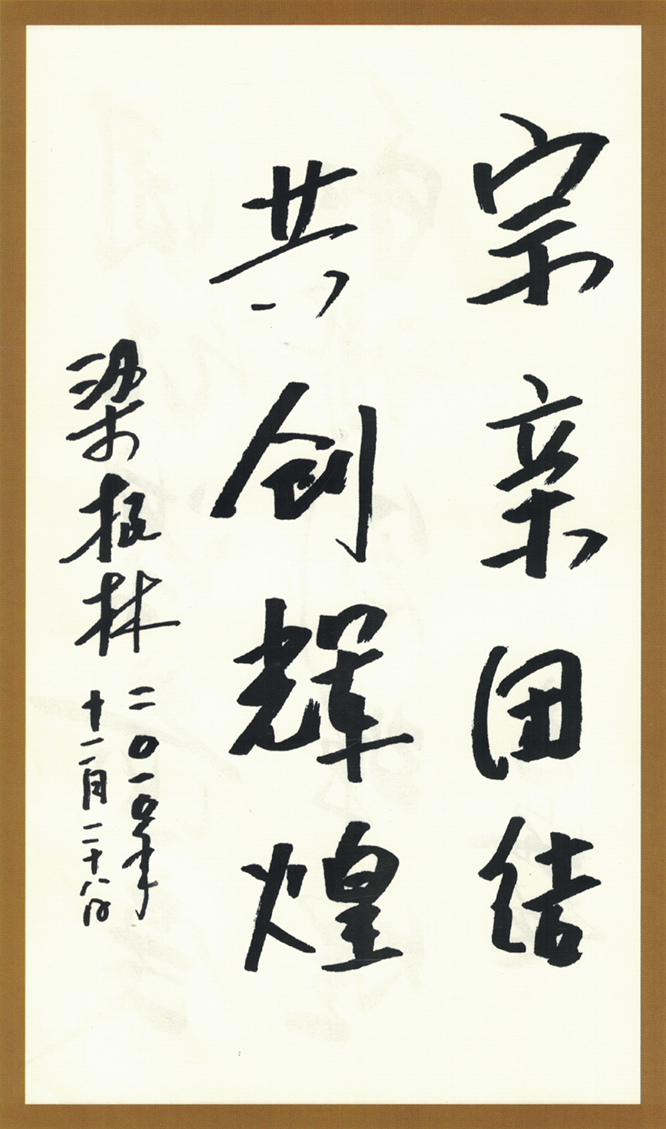 宗亲团结
共创辉煌
梁 林
二〇一五年
十二月二十八日